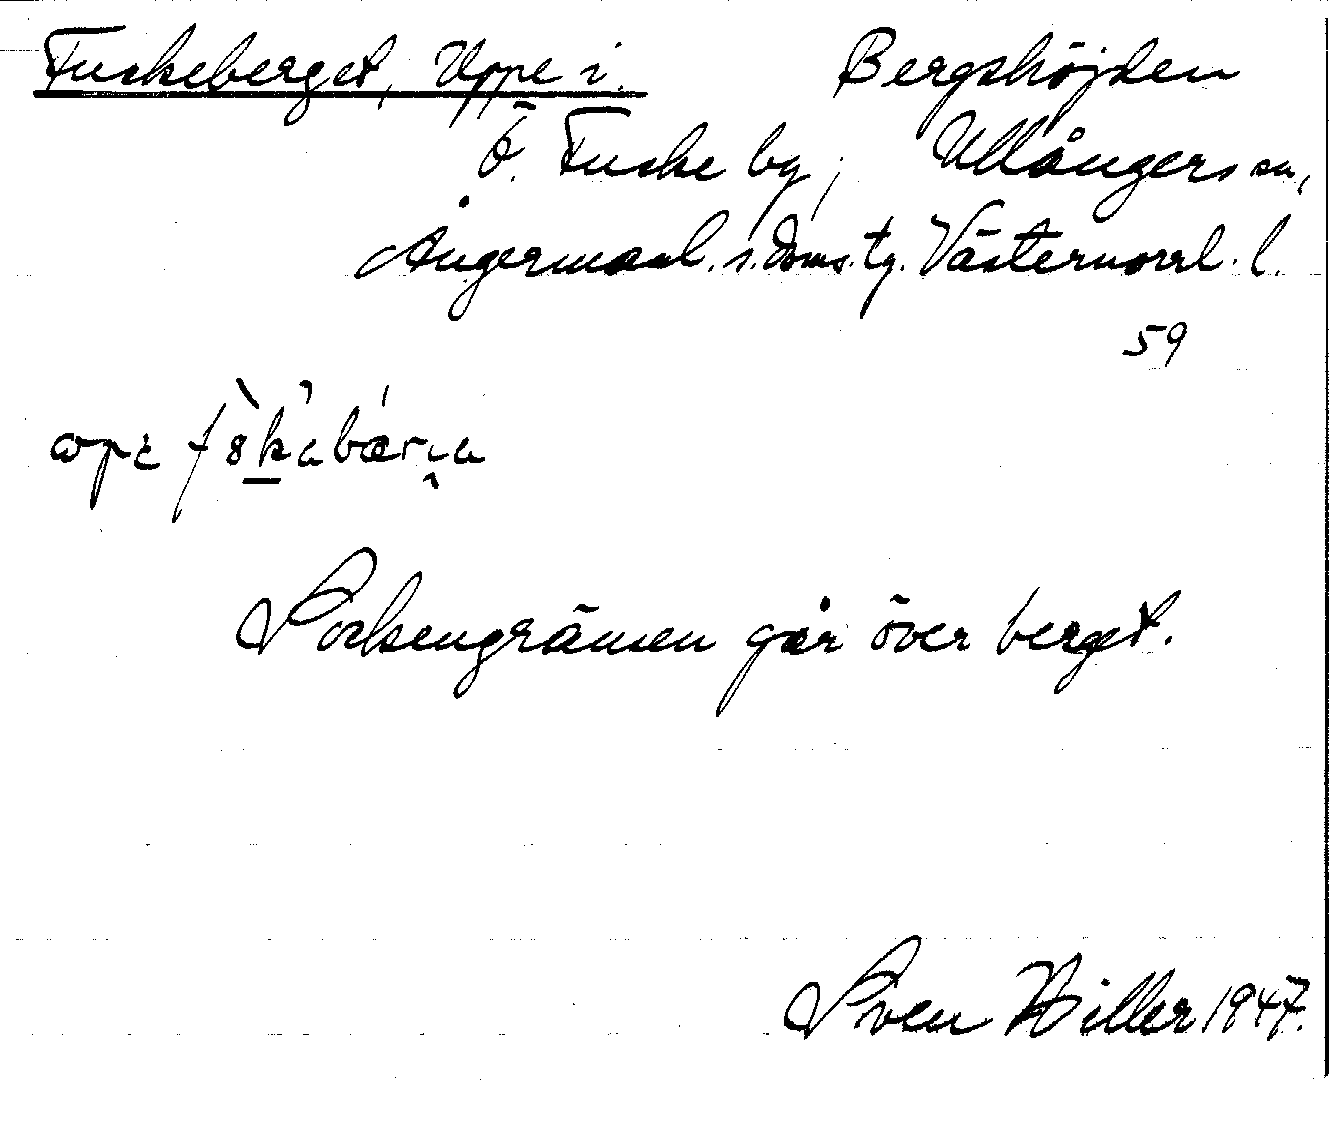 Fuskeberget, Uppe i. Bergshöjden
Ö. Fuske by, Ullångers sn,
Ångermanl. s. doms. tg. Västernorrl. l.
59
Sockengränsen går över berget.
Sven Hiller 1947.